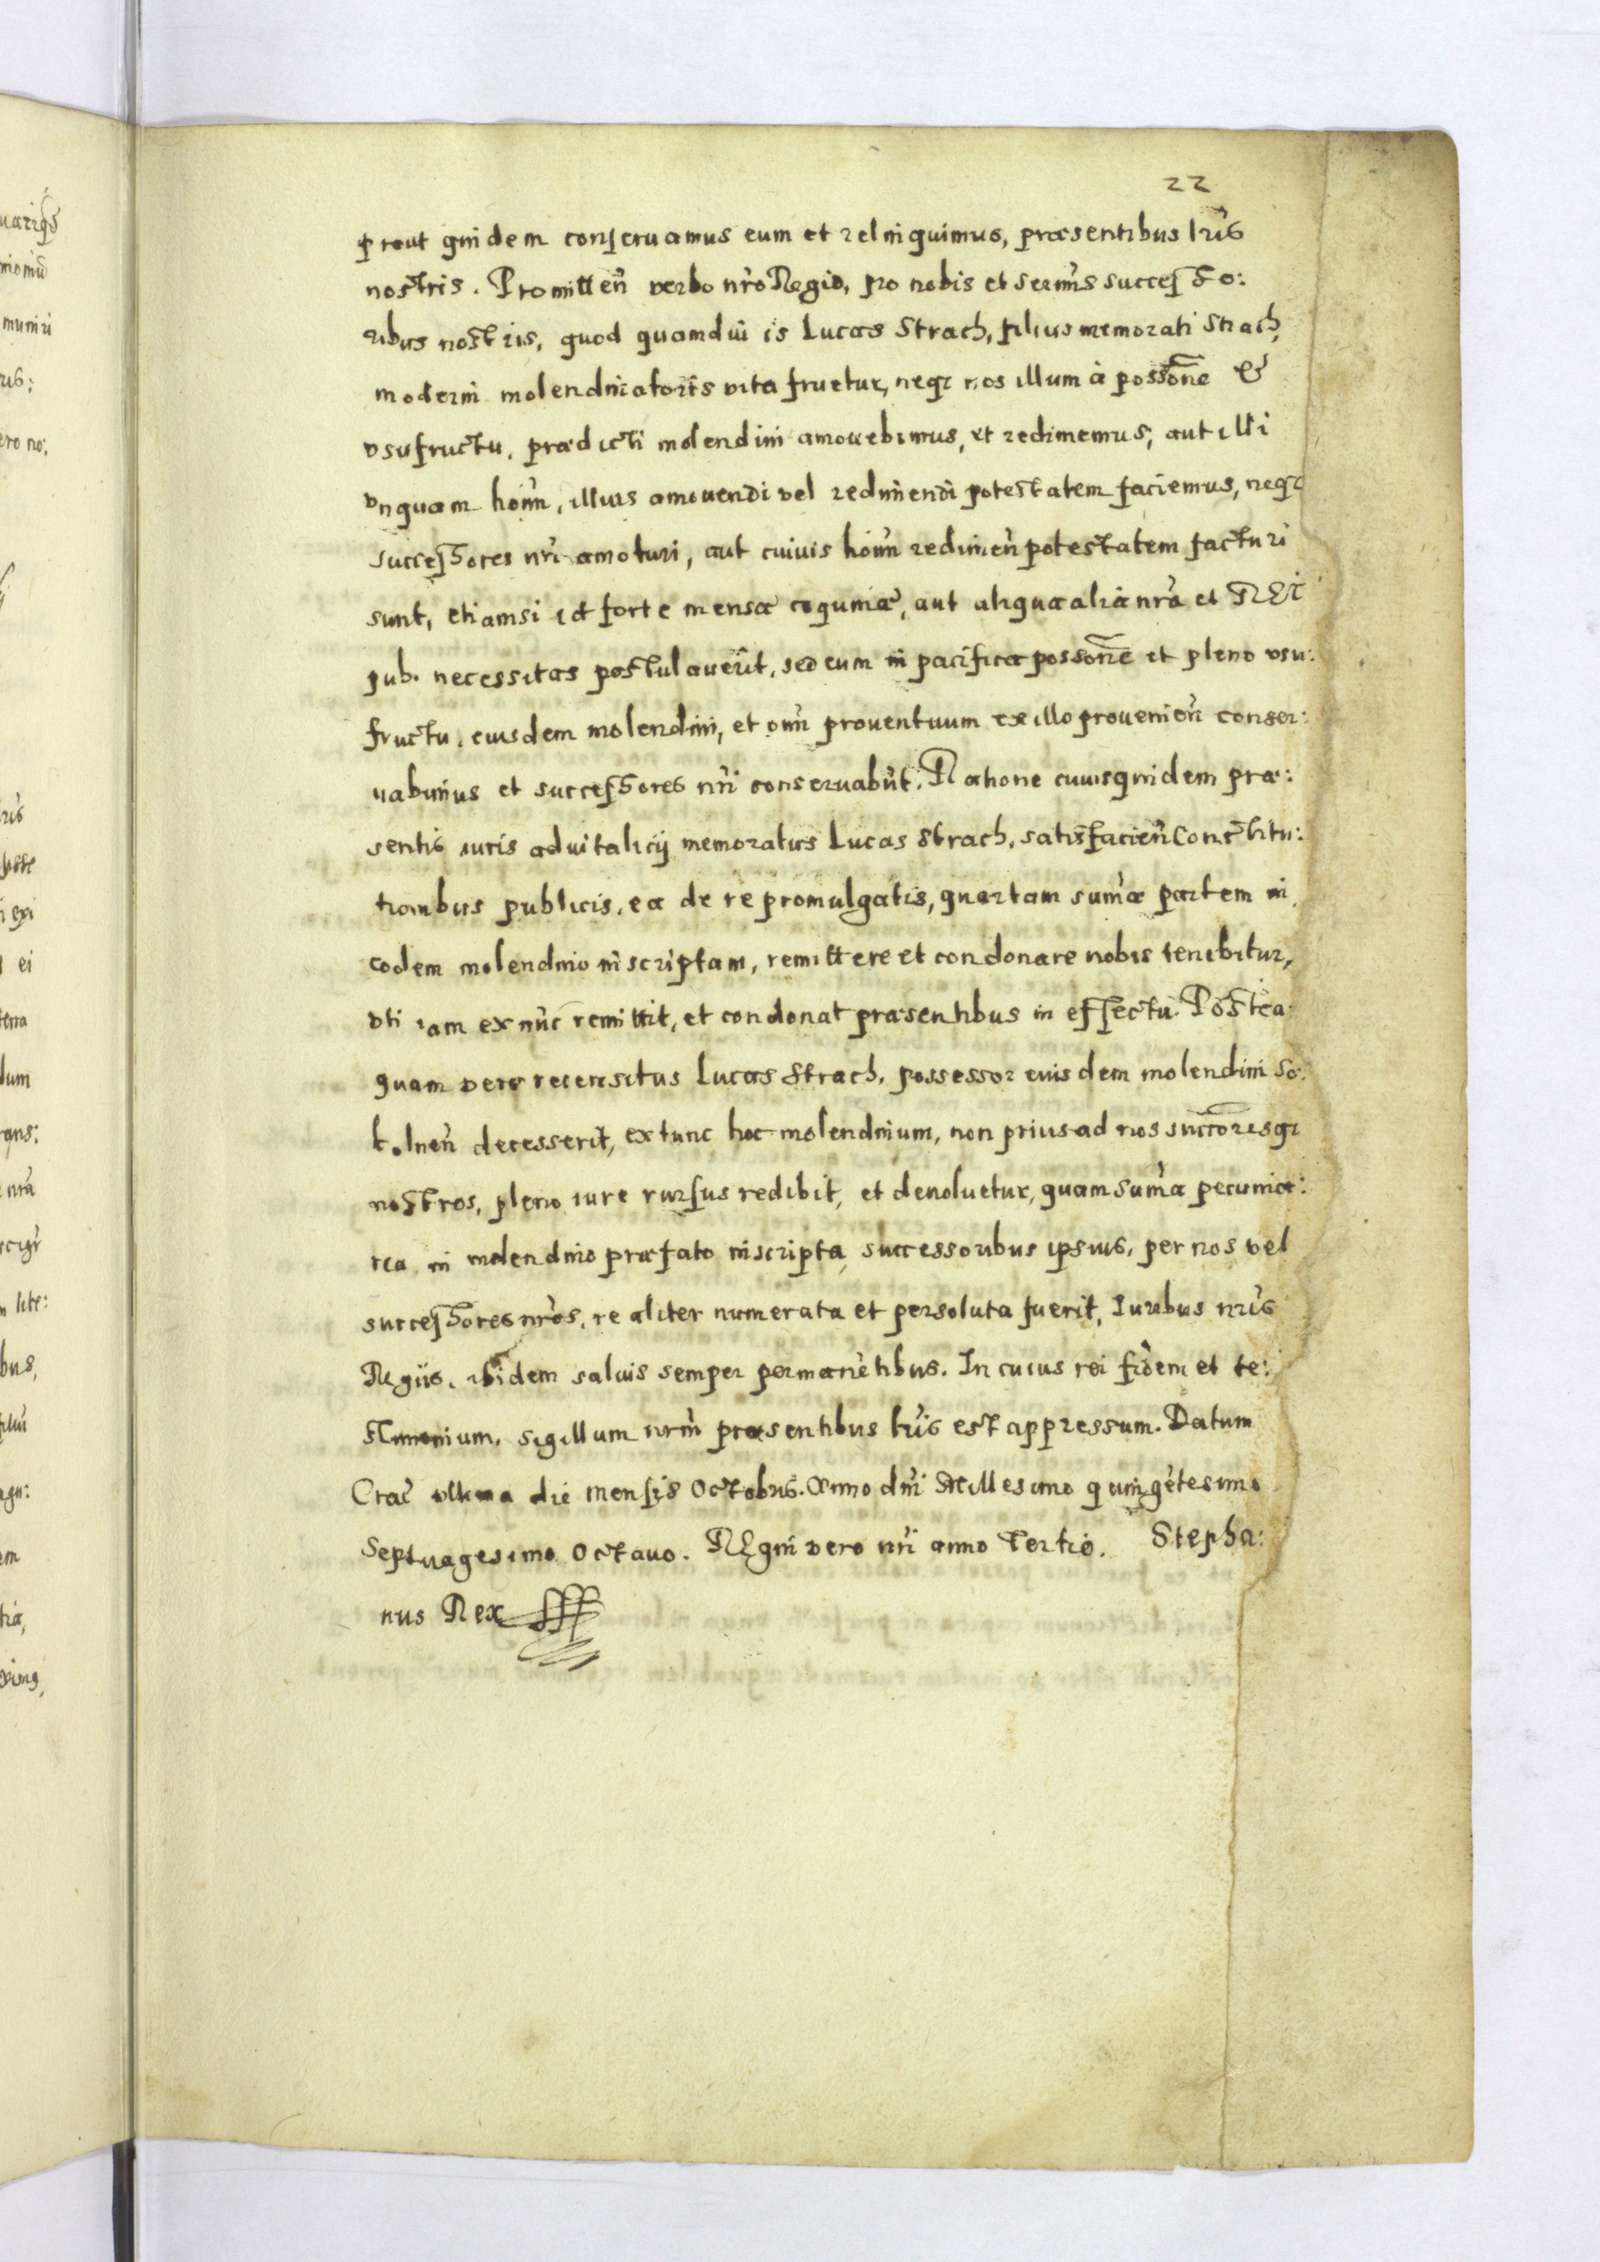 22
prout quidem conseruamus eum et relinquimus, præsentibus lr̃is
nostris. Promitteñ verbo nr̃o Regio, pro nobis et seremis̃ successo:
ribus nostris, quod quamdiu is Lucas Strach, filius memorati Strach,
moderni molendinatoris vita fruetur, neqz nos illum à possoñe &
vsufructu, prædicti molendini amouebimus, et redimemus, aut illi
vnquam homĩ, illius amouendi vel redimendi potestatem faciemus, neqz
successores nr̃i amoturi, aut cuiuis homĩ redimeñ potestatem facturi
sunt, etiamsi id forte mensæ coquinæ, aut aliqua alia nr̃a et REI
pub. necessitas postulauerit, sed eum in pacifica possoñe et pleno vsu:
fructu, eiusdem molendini, et om̃i prouentuum ex illo prouenieñ conser:
uabimus et successores nr̃i conseruabũt. Ratione cuiusquidem præ:
sentis iuris aduitalicij memoratus Lucas Strach, satisfacieñ Constitu:
tionibus publicis, ea de re promulgatis, quartam sum̃æ partem in
eodem molendino inscriptam, remittere et condonare nobis tenebitur,
vti iam ex nũc remittit, et condonat præsentibus in effectu. Postea:
quam vero recensitus Lucas Strach, possessor eiusdem molendini So:
k.lneñ decesserit, extunc hoc molendinum, non prius ad nos succoresqz
nostros, pleno iure rursus redibit, et deuoluetur, quam sum̃a pecunia:
ria in molendino præfato inscripta, successoribus ipsius, per nos vel
successores nr̃os, realiter numerata et persoluta fuerit, Iuribus nr̃is
Regijs, ibidem saluis semper permanẽtibus. In cuius rei fidem et te:
stimonium, sigillum nrm̃ præsentibus lr̃is est appressum. Datum
Crac̃ vltima die mensis Octobris. Anno dñi Millesimo quingẽtesimo
Septuagesimo Octauo. REgni vero nr̃i anno Tertio. Stepha:
nus Rex